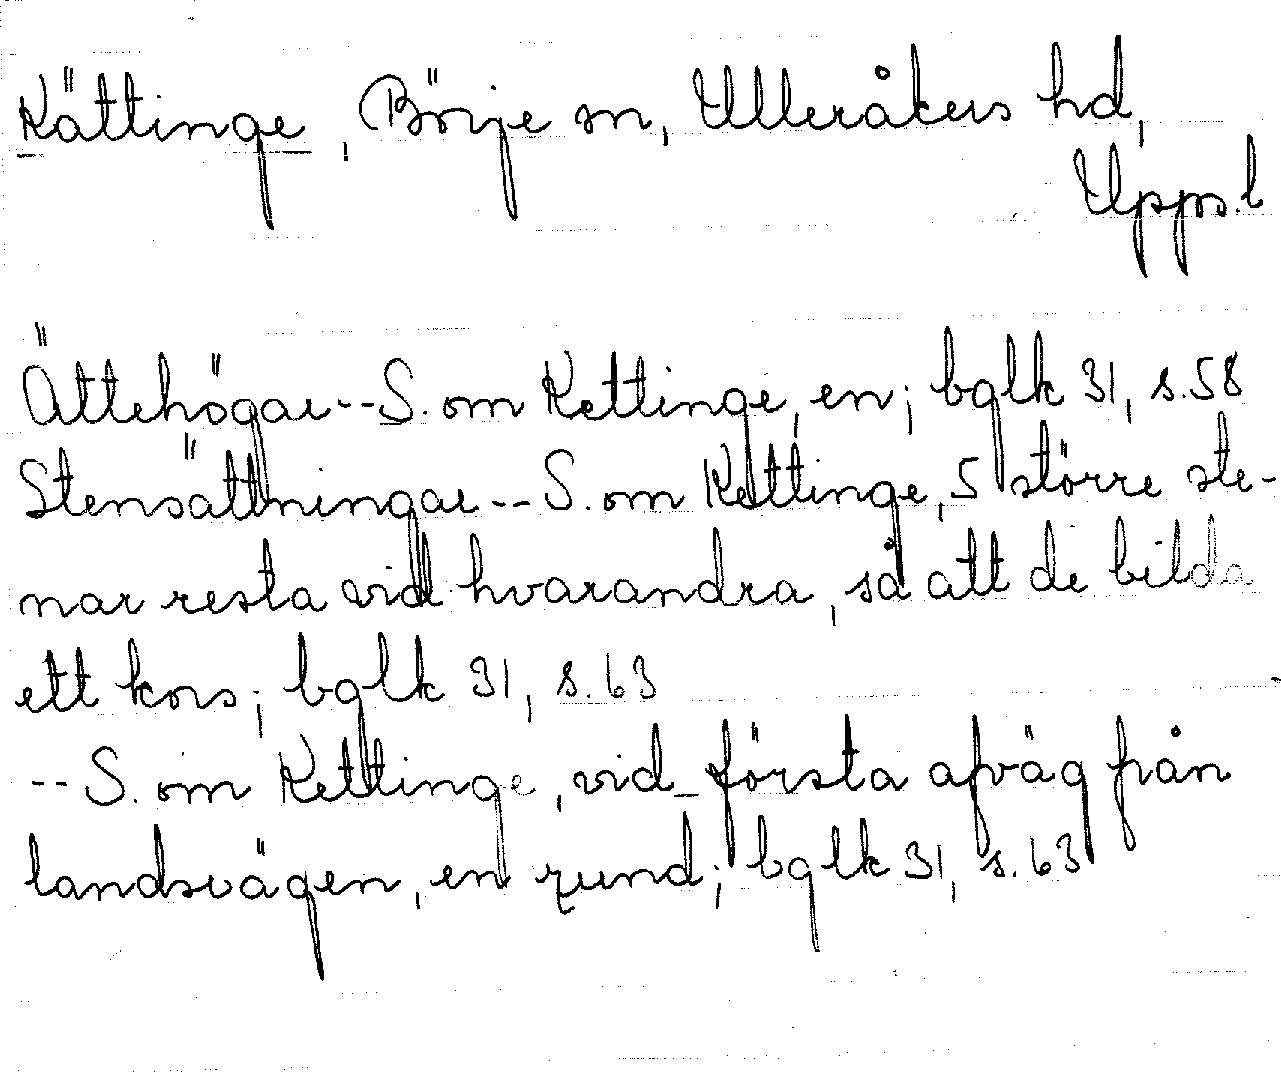 Kättinge, Börje sn, Ulleråkers hd,
Upps.l
Ättehögar--S. om Kettinge, en; bglk 31, s.58
Stensättningar--S. om Kettinge, 5 större ste-
nar resta vid hvarandra, så att de bilda
ett kors; bglk 31, s.63
--S. om Kettinge, vid första afväg från
landsvägen, en rund; bglk 31, s.63